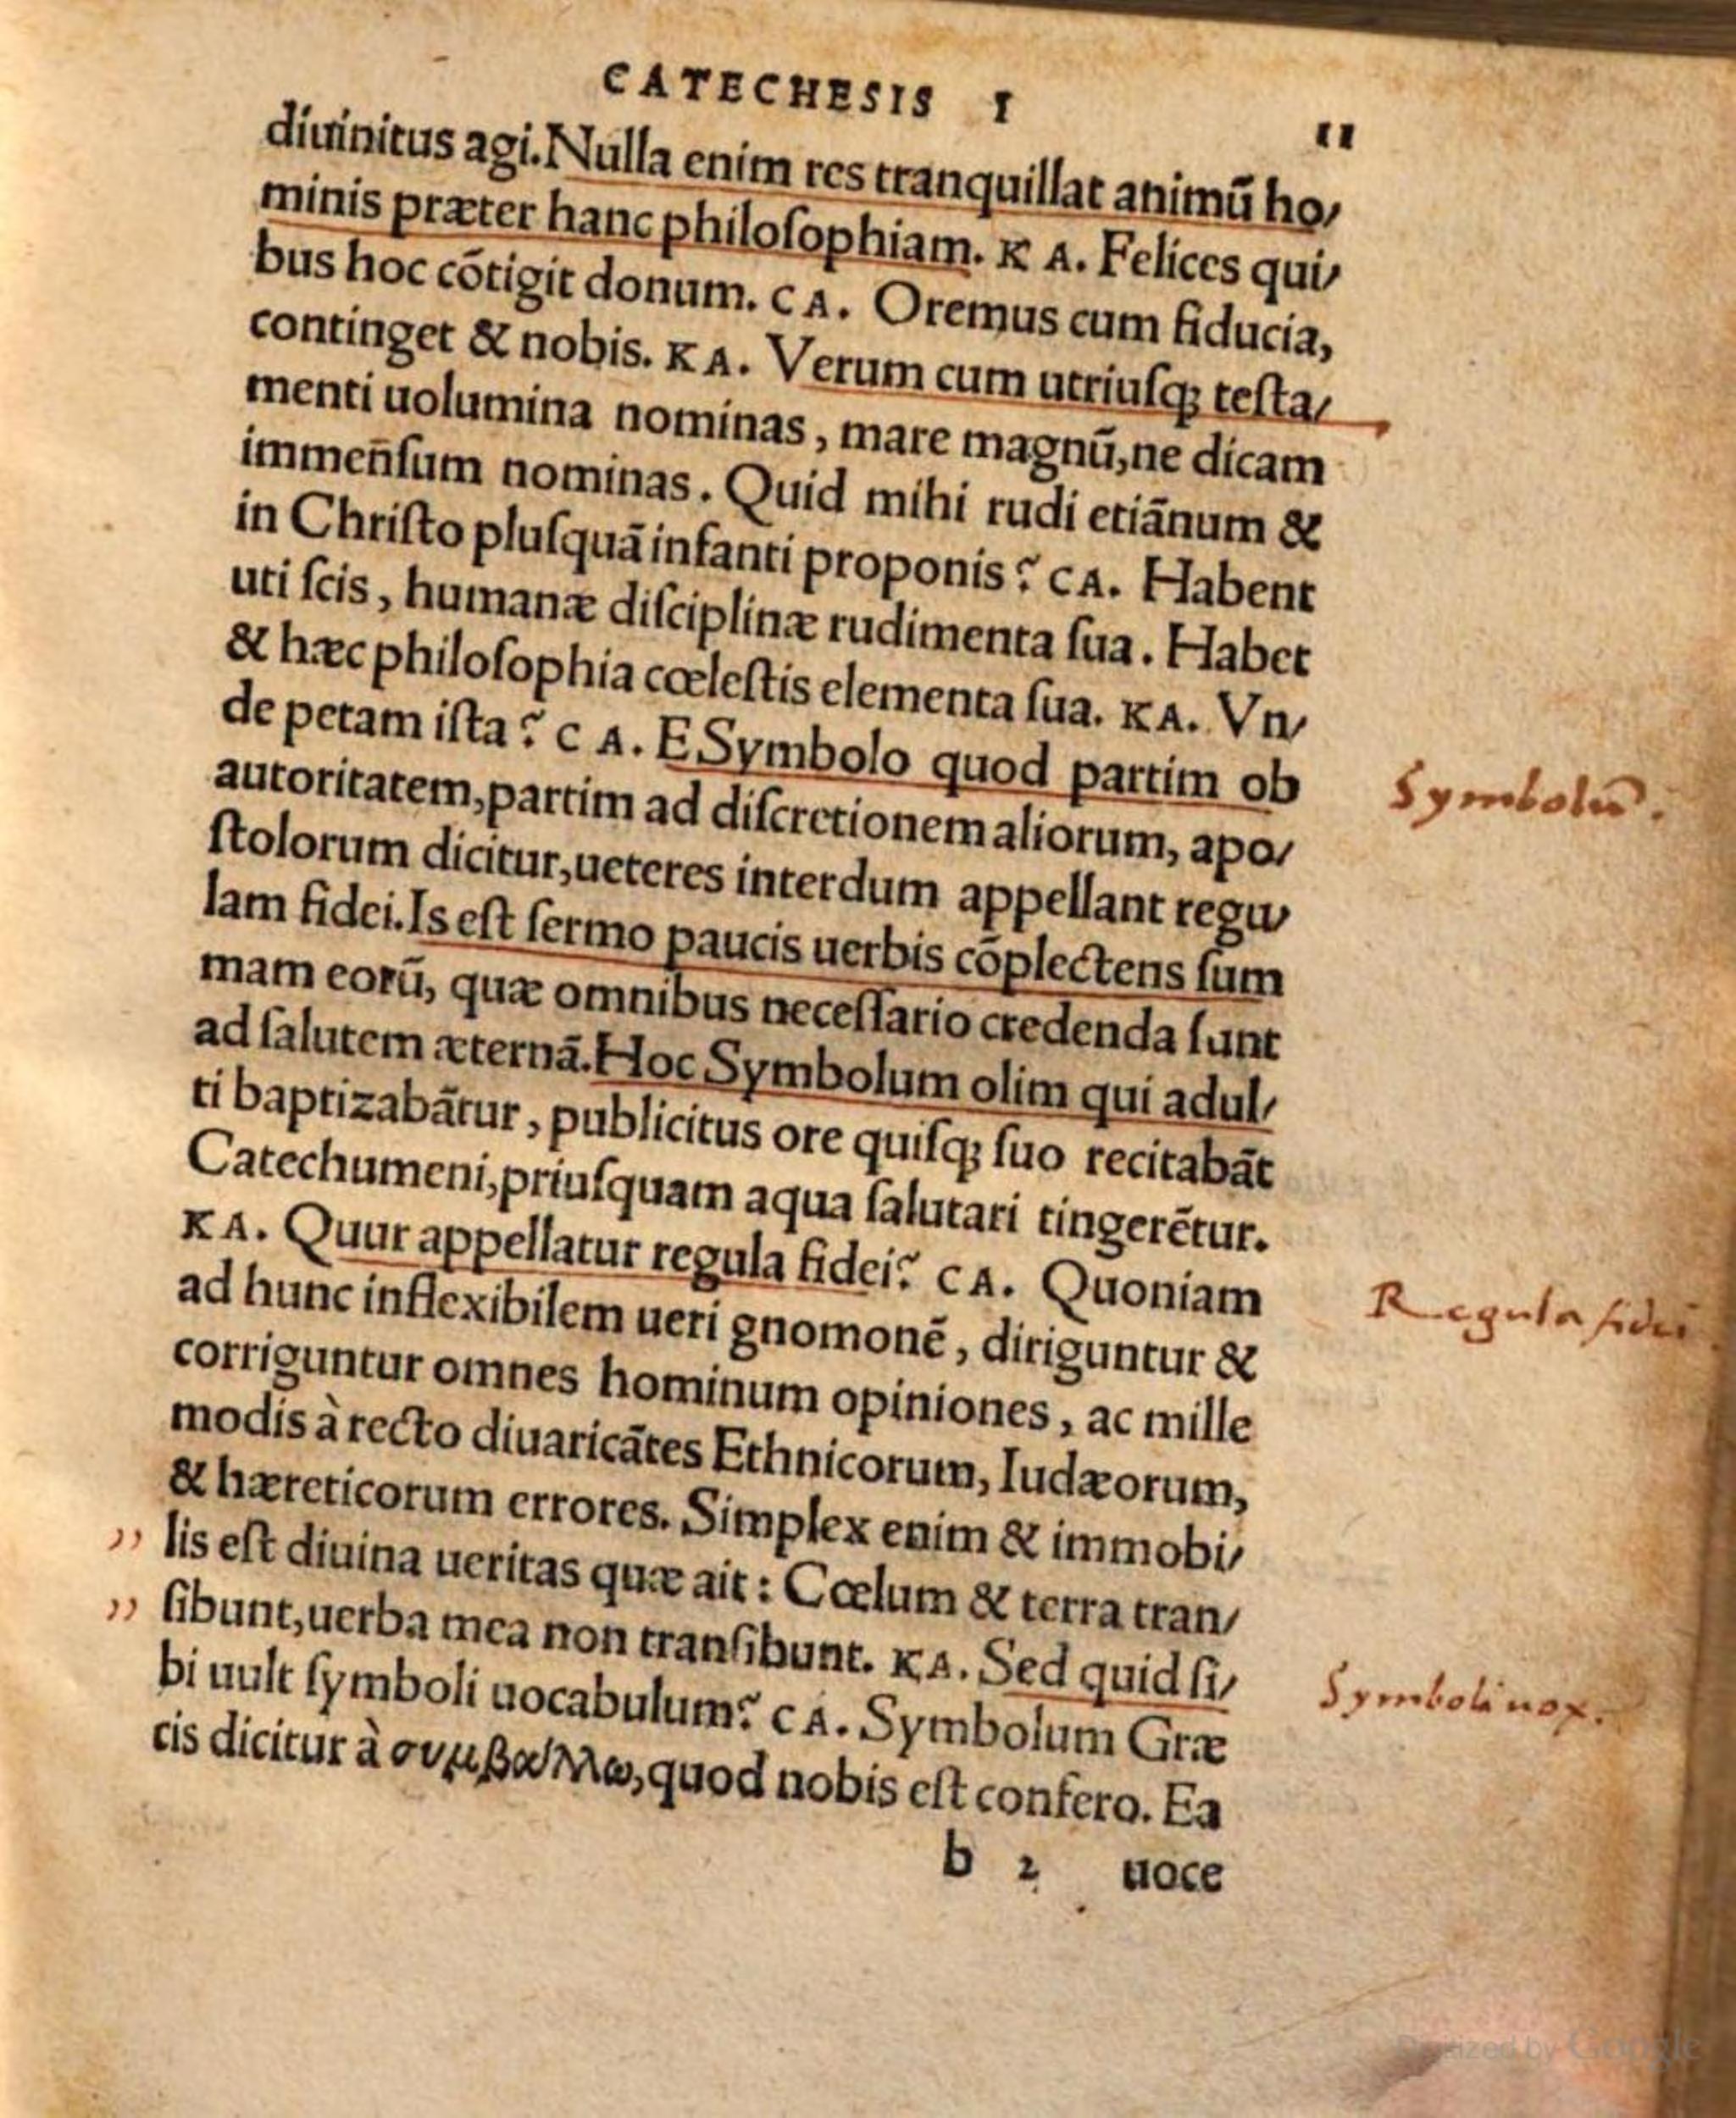 CATECHESIS I 11
diuinitus agi. Nulla enim res tranquillat animū ho/
minis præter hanc philoſophiam. K A. Felices qui/
bus hoc cōtigit donum. C A. Oremus cum fiducia,
continget & nobis. K A. Verum cum utriuſq; teſta/
menti uolumina nominas, mare magnū, ne dicam
immen̄ſum nominas. Quid mihi rudi etiānum &
in Chriſto pluſquā infanti proponis? C A. Habent
uti ſcis, humanæ diſciplinæ rudimenta ſua. Habet
& hæc philoſophia cœleſtis elementa ſua. K A. Vn/
de petam iſta? C A. E Symbolo quod partim ob
autoritatem, partim ad diſcretionem aliorum, apo/
ſtolorum dicitur, ueteres interdum appellant regu/
lam fidei. Is eſt ſermo paucis uerbis cōplectens ſum
mam eorū, quæ omnibus neceſſario credenda ſunt
ad ſalutem æternā. Hoc Symbolum olim qui adul/
ti baptizabātur, publicitus ore quiſq; ſuo recitabāt
Catechumeni, priuſquam aqua ſalutari tingerētur.
K A. Quur appellatur regula fidei? C A. Quoniam
ad hunc inflexibilem ueri gnomonē, diriguntur &
corriguntur omnes hominum opiniones, ac mille
modis à recto diuaricātes Ethnicorum, Iudæorum,
& hæreticorum errores. Simplex enim & immobi/
,, lis eſt diuina ueritas quæ ait: Cœlum & terra tran/
,, ſibunt, uerba mea non tranſibunt. K A. Sed quid ſi/
bi uult ſymboli uocabulum? C A. Symbolum Græ
cis dicitur à συμβάλλω, quod nobis eſt confero. Ea
b 2 uoce
Symbolū.
Regula fidei
Symboli uox.
Digitized by Google